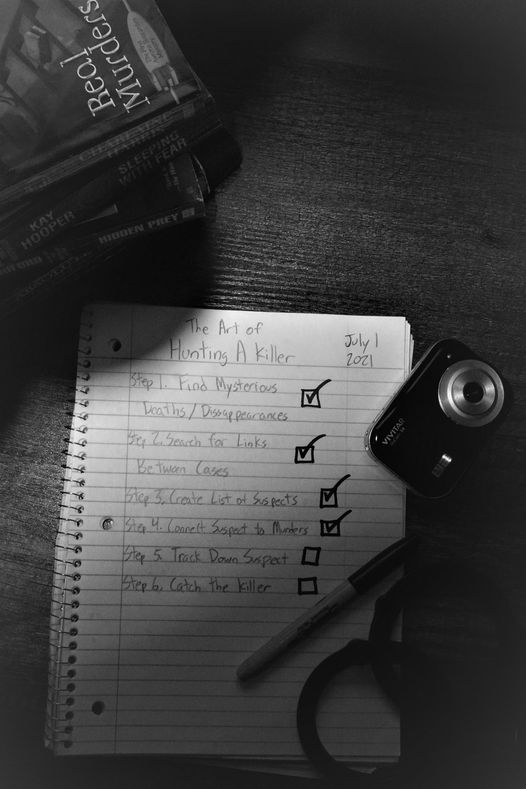 Real
Murders
CHARLAINE
HARRIS
SLEEPING
WITH FEAR
KAY
HOOPER
HIDDEN PREY
The Art of
Hunting A Killer
July 1
2021
Step 1. Find Mysterious
Deaths/Dissappearances
Step 2. Search for Links
Between Cases
Step 3. Create List of Suspects
Step 4. Connect Suspect to Murders
Step 5. Track Down Suspect
Step 6. Catch the Killer
VIVITAR